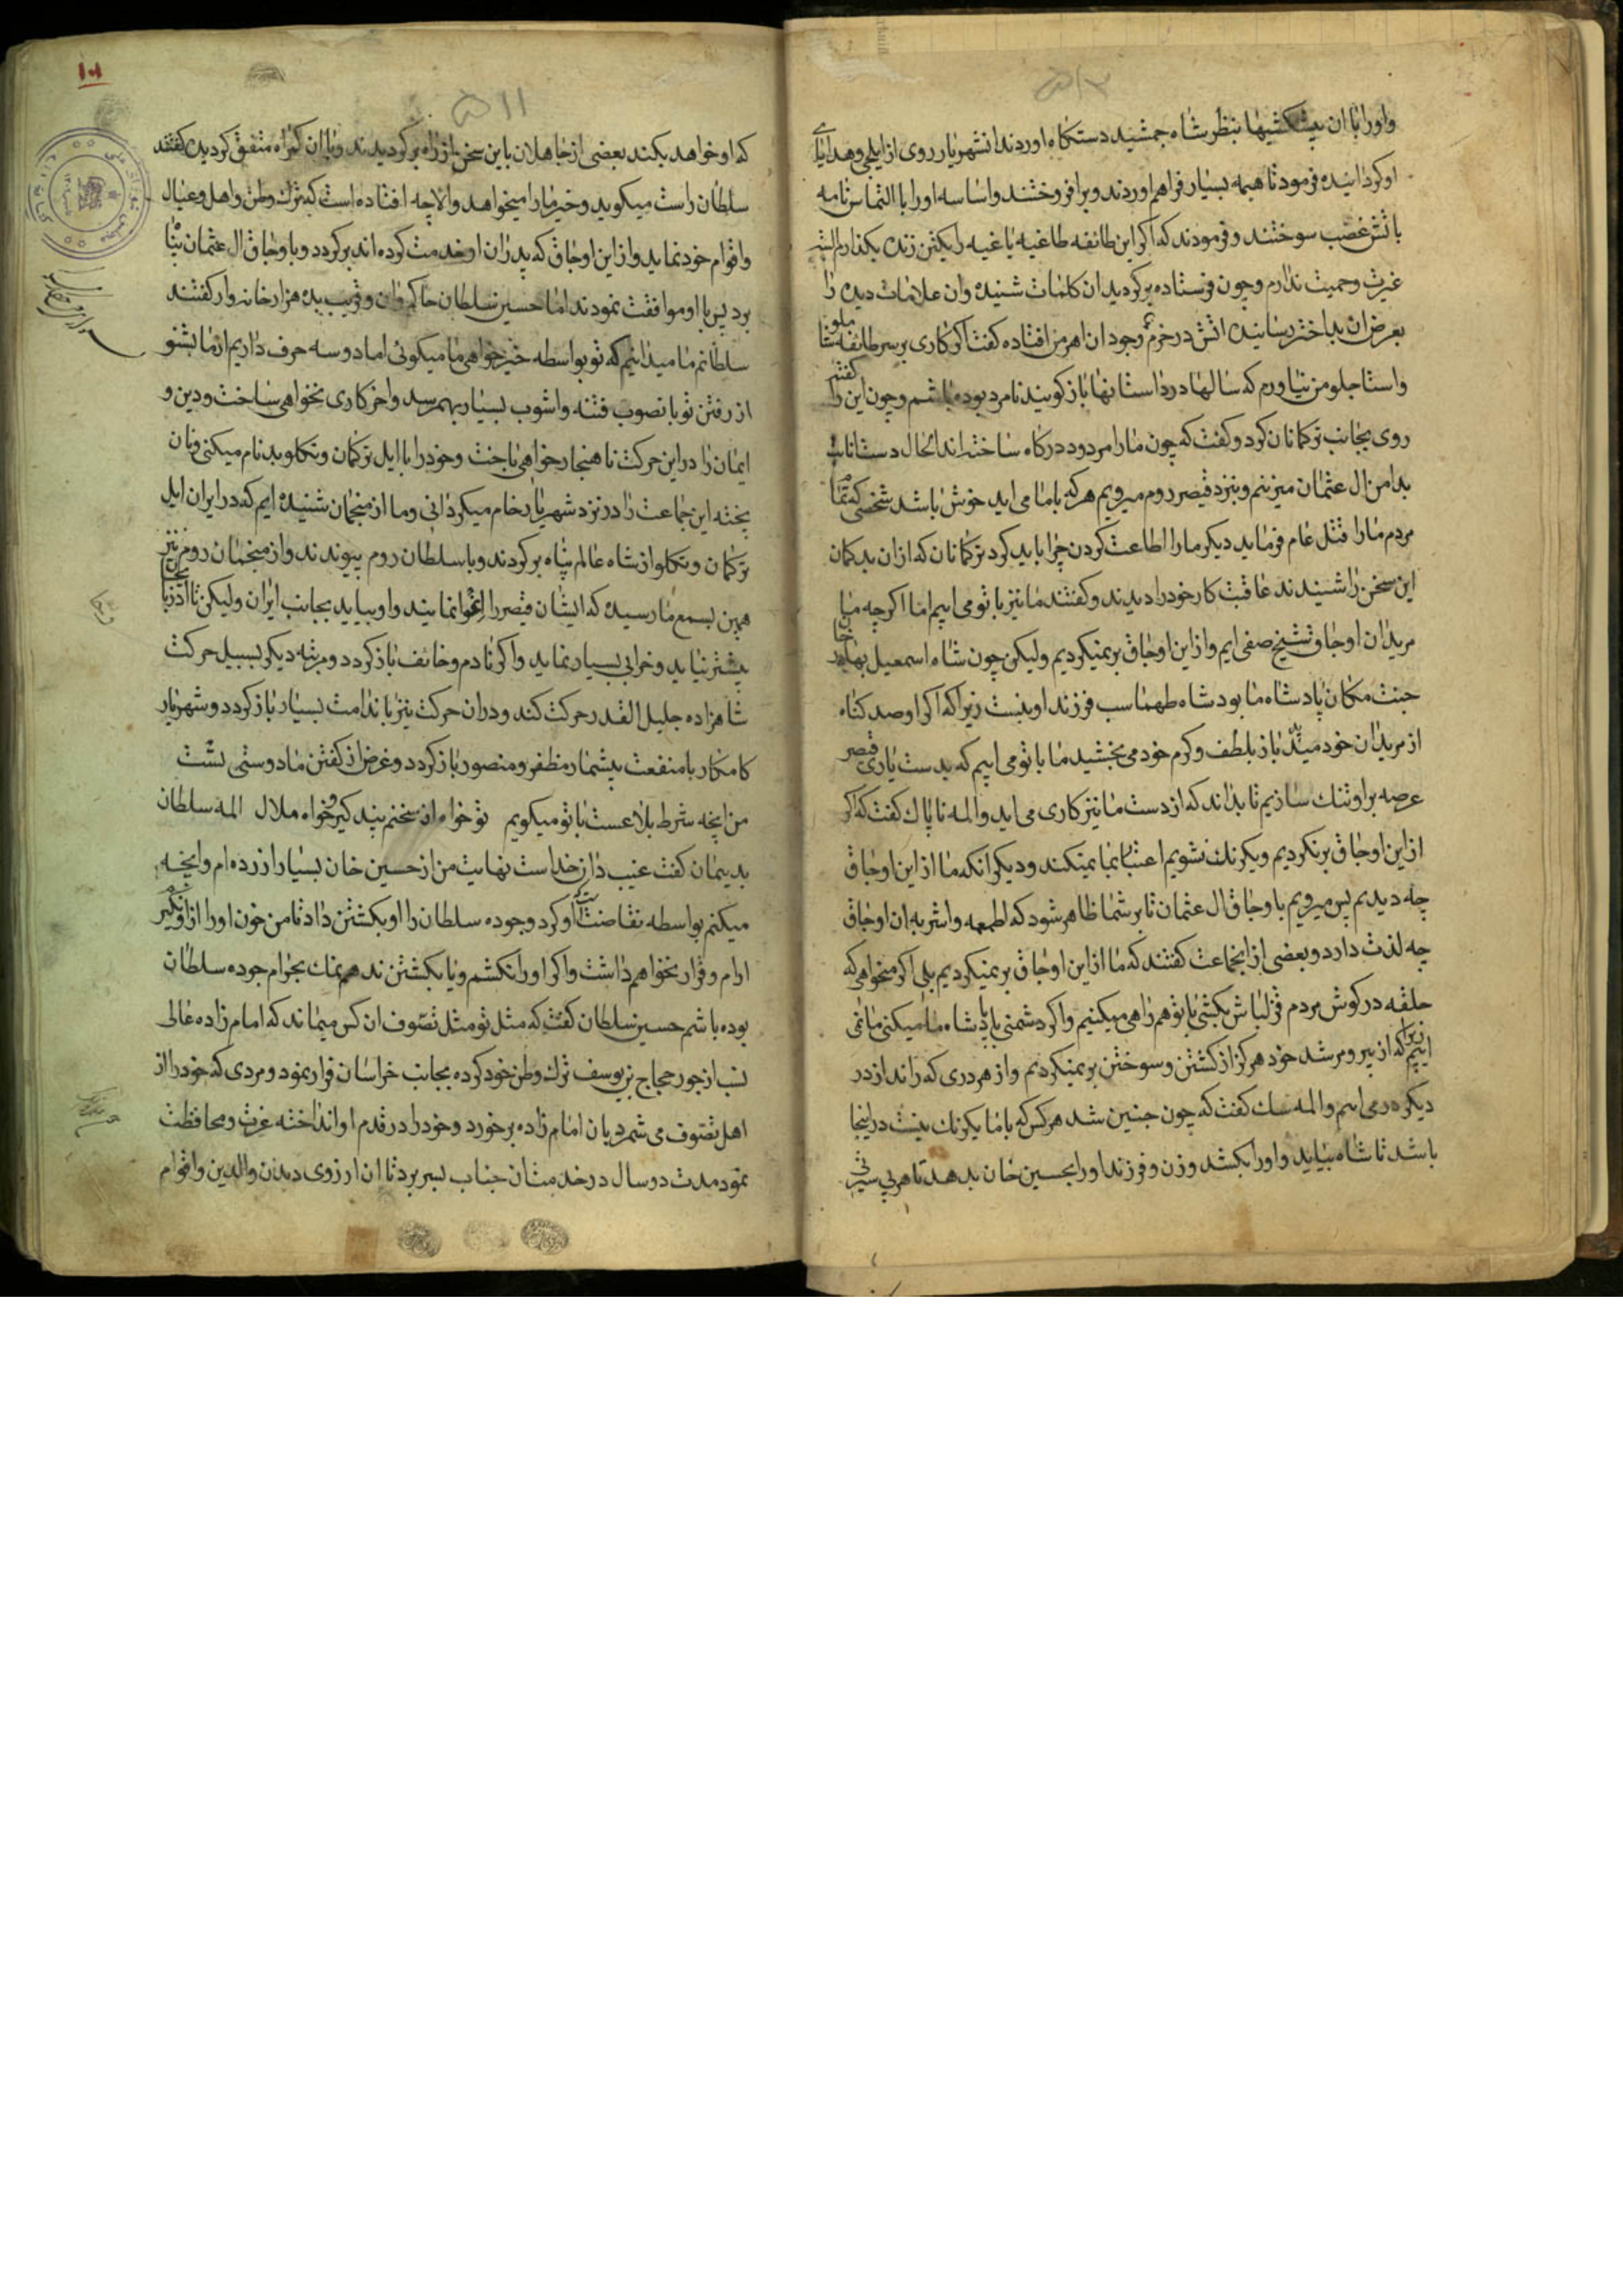 واورا با ان پیشکشیها بنظر شاه جمشید دستکاه اوردند انشهریار روی از ایلچی وهدایای
اوکردانیده فرمود تا هیمه بسیار فراهم اوردند وبرافروختند واساسه اورا با التماس نامه
باتش غضب سوختند وفرمودند که اکر این طائفه طاغیه یاغیه را یکتن زنده بکذارم
غیرت وحمیت ندارم وچون فرستاده برکردید ان کلمات شنیده وان علامات دیده را
بعرض ان بداختر رسانیده اتش در خرمن وجود ان اهرمن افتاده کفت اکر کاری بر سر طایفه شاملو
واستاجلو من نیاورم که سالها در داستانها باز کویند نامرد بوده باشم وچون این را کفتم
روی بجانب ترکمانان کرد وکفت که چون مارا مردود درکاه ساختند الحال دست
بدامن ال عثمان میزنیم وبنزد قیصر روم میرویم هر که باما می اید خوش باشد شخصی که
مردم مارا قتل عام فرماید دیکر مارا اطاعت کردن چرا باید کرد ترکمانان که از ان بدکمان
این سخن را شنیدند عاقبت کار خودرا دیدند وکفتند ما نیز باتو می اییم اما اکرچه ما
مریدان اوجاق شیخ صفی ایم واز این اوجاق برنمیکردیم ولیکن چون شاه اسمعیل بهادر خان
جنت مکان پادشاه ما بود شاه طهماسب فرزند او نیست زیرا که اکر او صد کناه
از مریدان خود میدید باز بلطف وکرم خود می بخشید ما باتو می اییم که بدست یاری قیصر
عرصه بر او تنک سازیم تا بداند که از دست ما نیز کاری می اید والمه ناپاک کفت که اکر
از این اوجاق برنکردیم ویکرنک نشویم اعتبار بما نمیکند ودیکر انکه ما از این اوجاق
چه دیدیم پس میرویم باوجاق ال عثمان تا بر شما ظاهر شود که اطمعه واشربه ان اوجاق
چه لذت دارد وبعضی از انجماعت کفتند که ما از این اوجاق برنمیکردیم بلی اکر میخواهی که
حلقه در کوش مردم قزلباش بکشی باتو همراهی میکنیم واکر دشمنی با پادشاه ما میکنی ما نمی
اییم زیرا که از پیر ومرشد خود هرکز از کشتن وسوختن برنمیکردیم واز هر دری که راند از در
دیکر در می اییم والمه سک کفت که چون چنین شد هر کس که باما یکرنک نیست در اینجا
باشد تا شاه بیاید واورا بکشد وزن وفرزند اورا بحسین خان بدهد تا هر بی سیرتی
۱۰۱
۵۱۱
که او خواهد بکند بعضی از جاهلان باین سخن از راه برکردیدند وبا ان کمراه متفق کردیده کفتند
سلطان راست میکوید وخیر مارا میخواهد والا چه افتاده است که ترک وطن واهل وعیال
واقوام خود نماید واز این اوجاق که پدران او خدمت کرده اند برکردد وباوجاق ال عثمان پناه
برد پس با او موافقت نمودند اما حسین سلطان حاکم وان وقریب بده هزار خانه وار کفتند
سلطانم ما میدانیم که تو بواسطه خیرخواهی ما میکوئی اما دوسه حرف داریم از ما بشنو
از رفتن تو با نصوب فتنه واشوب بسیار بهم رسد واخر کاری نخواهی ساخت ودین و
ایمان را در این حرکت ناهنجار خواهی باخت وخودرا با ایل ترکمان وتکلو بدنام میکنی ونان
پخته این جماعت را در نزد شهریار خام میکردانی وما از منجمان شنیده ایم که در ایران ایل
ترکمان وتکلو از شاه عالم پناه برکردند وبا سلطان روم پیوندند واز منجمان روم نیز
همین بسمع ما رسیده که ایشان قیصر را اغوا نمایند واو بیاید بجانب ایران ولیکن تا اذربایجان
بیشتر نیاید وخرابی بسیار نماید واکر نادم وخائف باز کردد ومرتبه دیکر بسبیل حرکت
شاهزاده جلیل القدر حرکت کند ودر ان حرکت نیز با ندامت بسیار باز کردد وشهریار
کامکار با منفعت بیشمار مظفر ومنصور باز کردد وغرض از کفتن ما دوستی تست
من انچه شرط بلاغست با تو میکویم تو خواه از سخنم پند کیر وخواه ملال المه سلطان
بدیمان کفت غیب دان خداست نهایت من از حسین خان بسیار ازرده ام وانچه
میکنم بواسطه نقاضت او کرد وجوده سلطان را او بکشتن داد تا من خون اورا از او نکیرم
ارام وقرار نخواهم داشت واکر اورا نکشم ویا بکشتن ندهم نمک بحرام جوده سلطان
بوده باشم حسین سلطان کفت که مثل تو مثل تصوف ان کس میماند که امام زاده عالی
نسب از جور حجاج بن یوسف ترک وطن خود کرده بجانب خراسان فرار نمود ومردی که خودرا از
اهل تصوف می شمرد بان امام زاده برخورد وخودرا در قدم او انداخته عزت ومحافظت
نمود مدت دو سال در خدمت ان جناب بسر برد تا ان ارزوی دیدن والدین واقوام